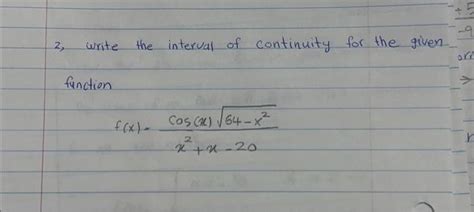 2, write the interval of continuity for the given
function
f(x) = cos(x) √(64-x²) / x² + x - 20